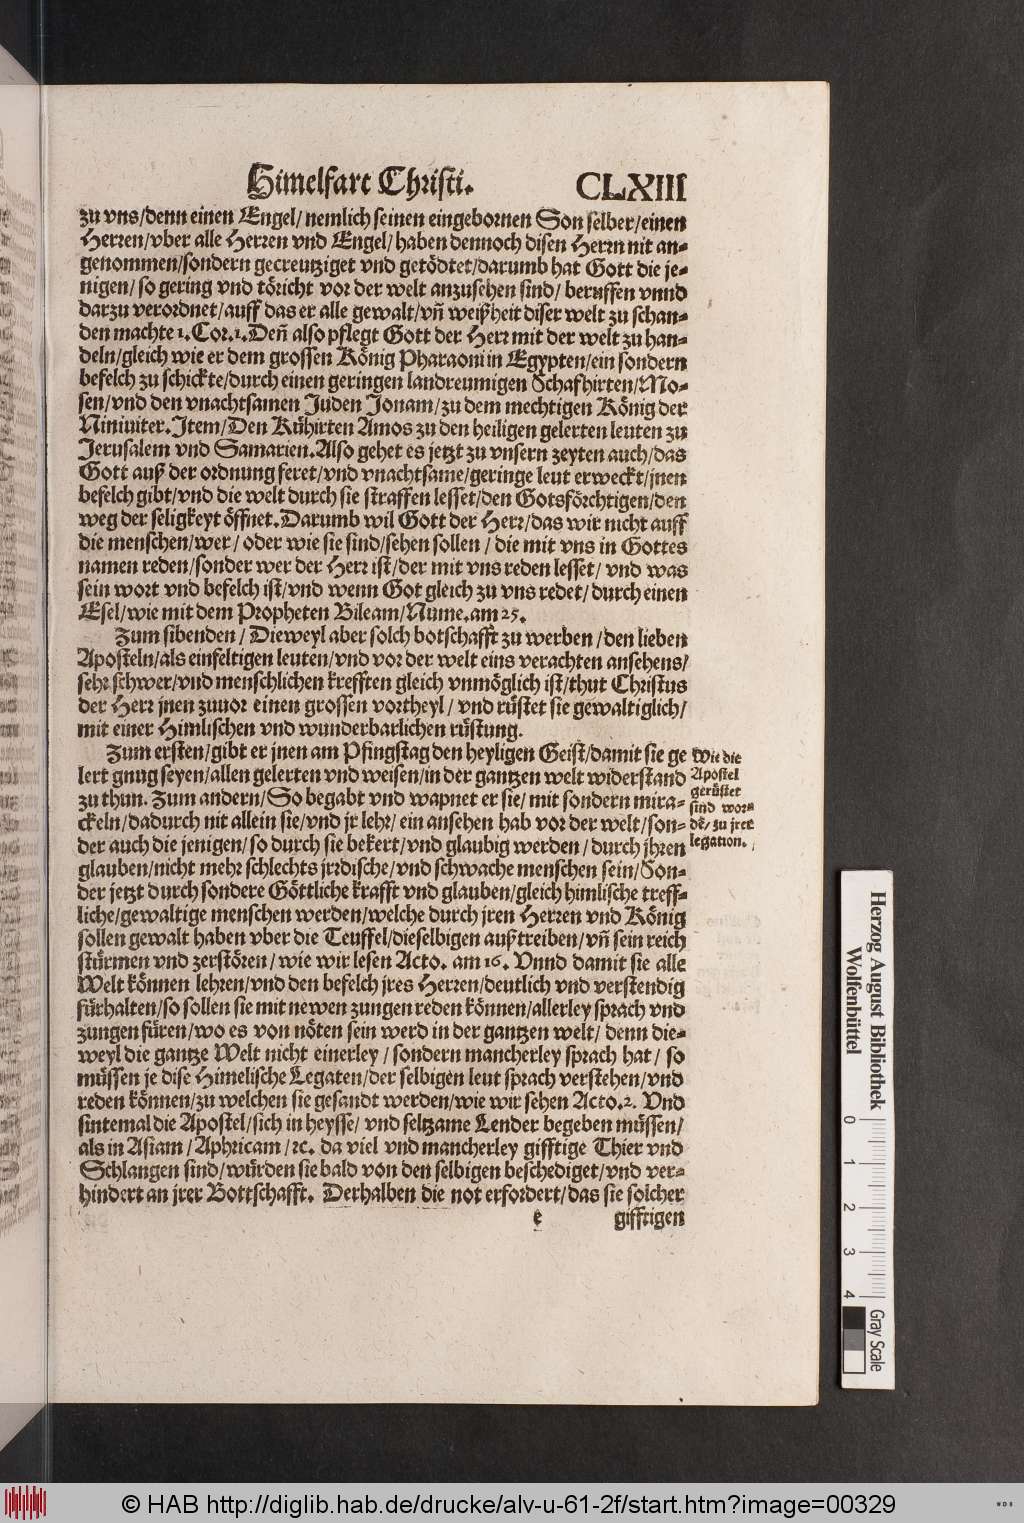 Himelfart Christi. CLXIII
zu vns/denn einen Engel/ nemlich seinen eingebornen Son selber/einen
Herren/vber alle Herren vnd Engel/ haben dennoch disen Herrn nit an-
genommen/sondern gecreutziget vnd getödtet/darumb hat Gott die je-
nigen/ so gering vnd töricht vor der welt anzusehen sind/ beruffen vnnd
darzu verordnet/auff das er alle gewalt/vñ weißheit diser welt zu schan-
den machte 1. Cor. 1. Deñ also pflegt Gott der Herr mit der welt zu han-
deln/gleich wie er dem grossen König Pharaoni in Egypten/ein sondern
befelch zu schickte/durch einen geringen landreumigen Schafhirten/Mo-
sen/vnd den vnachtsamen Juden Jonam/zu dem mechtigen König der
Niniuiter. Item/Den Kühirten Amos zu den heiligen gelerten leuten zu
Jerusalem vnd Samarien. Also gehet es jetzt zu vnsern zeyten auch/das
Gott auß der ordnung feret/vnd vnachtsame/geringe leut erweckt/jnen
befelch gibt/vnd die welt durch sie straffen lesset/den Gotsförchtigen/den
weg der seligkeyt öffnet. Darumb wil Gott der Herr/das wir nicht auff
die menschen/wer/ oder wie sie sind/sehen sollen / die mit vns in Gottes
namen reden/sonder wer der Herr ist/der mit vns reden lesset/ vnd was
sein wort vnd befelch ist/vnd wenn Got gleich zu vns redet/durch einen
Esel/wie mit dem Propheten Bileam/Nume. am 25.
Zum sibenden / Dieweyl aber solch botschafft zu werben /den lieben
Aposteln/als einfeltigen leuten/vnd vor der welt eins verachten ansehens/
sehr schwer/vnd menschlichen krefften gleich vnmöglich ist/thut Christus
der Herr jnen zuuor einen grossen vortheyl / vnd rüstet sie gewaltiglich/
mit einer Himlischen vnd wunderbarlichen rüstung.
Zum ersten/gibt er jnen am Pfingstag den heyligen Geist/damit sie ge
lert gnug seyen/allen gelerten vnd weisen/in der gantzen welt widerstand
zu thun. Zum andern/So begabt vnd wapnet er sie/ mit sondern mira-
ckeln/dadurch nit allein sie/vnd jr lehr/ ein ansehen hab vor der welt/son-
der auch die jenigen/so durch sie bekert/vnd glaubig werden / durch jhren
glauben/nicht mehr schlechts jrrdische/vnd schwache menschen sein/Son-
der jetzt durch sondere Göttliche krafft vnd glauben/gleich himlische treff-
liche/gewaltige menschen werden/welche durch jren Herren vnd König
sollen gewalt haben vber die Teuffel/dieselbigen außtreiben/vñ sein reich
stürmen vnd zerstören/ wie wir lesen Acto. am 16. Vnnd damit sie alle
Welt können lehren/vnd den befelch jres Herren/deutlich vnd verstendig
fürhalten/so sollen sie mit newen zungen reden können/allerley sprach vnd
zungen füren/wo es von nöten sein werd in der gantzen welt/ denn die-
weyl die gantze Welt nicht einerley / sondern mancherley sprach hat/ so
müssen je dise Himelische Legaten/der selbigen leut sprach verstehen/vnd
reden können/zu welchen sie gesandt werden/wie wir sehen Acto. 2. Vnd
sintemal die Apostel/sich in heysse/ vnd seltzame Lender begeben müssen/
als in Asiam / Aphricam / ꝛc. da viel vnd mancherley gifftige Thier vnd
Schlangen sind/würden sie bald von den selbigen beschediget/vnd ver-
hindert an jrer Bottschafft. Derhalben die not erfordert/das sie solcher
e gifftigen
Wie die
Apostel
gerüstet
sind wor-
dē/ zu jrer
legation.
Herzog August Bibliothek
Wolfenbüttel
0 1 2 3 4
Gray Scale
© HAB http://diglib.hab.de/drucke/alv-u-61-2f/start.htm?image=00329